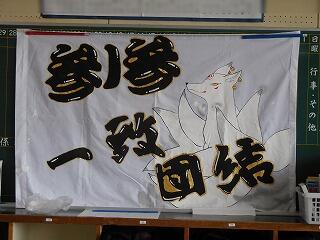 参川参
一致
団結
29 28
日曜
行事・その他
係